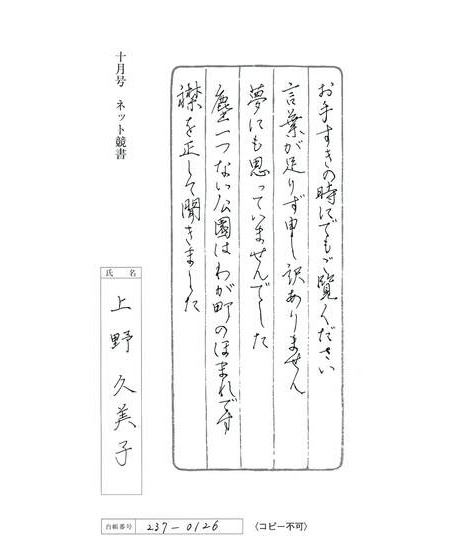 十月号 ネット競書
お手すきの時にでもご覧ください
言葉が足りず申し訳ありません
夢にも思っていませんでした
塵一つない公園はわが町のほまれです
襟を正して聞きました
氏名
上野久美子
台帳番号 237-0126
〈コピー不可〉